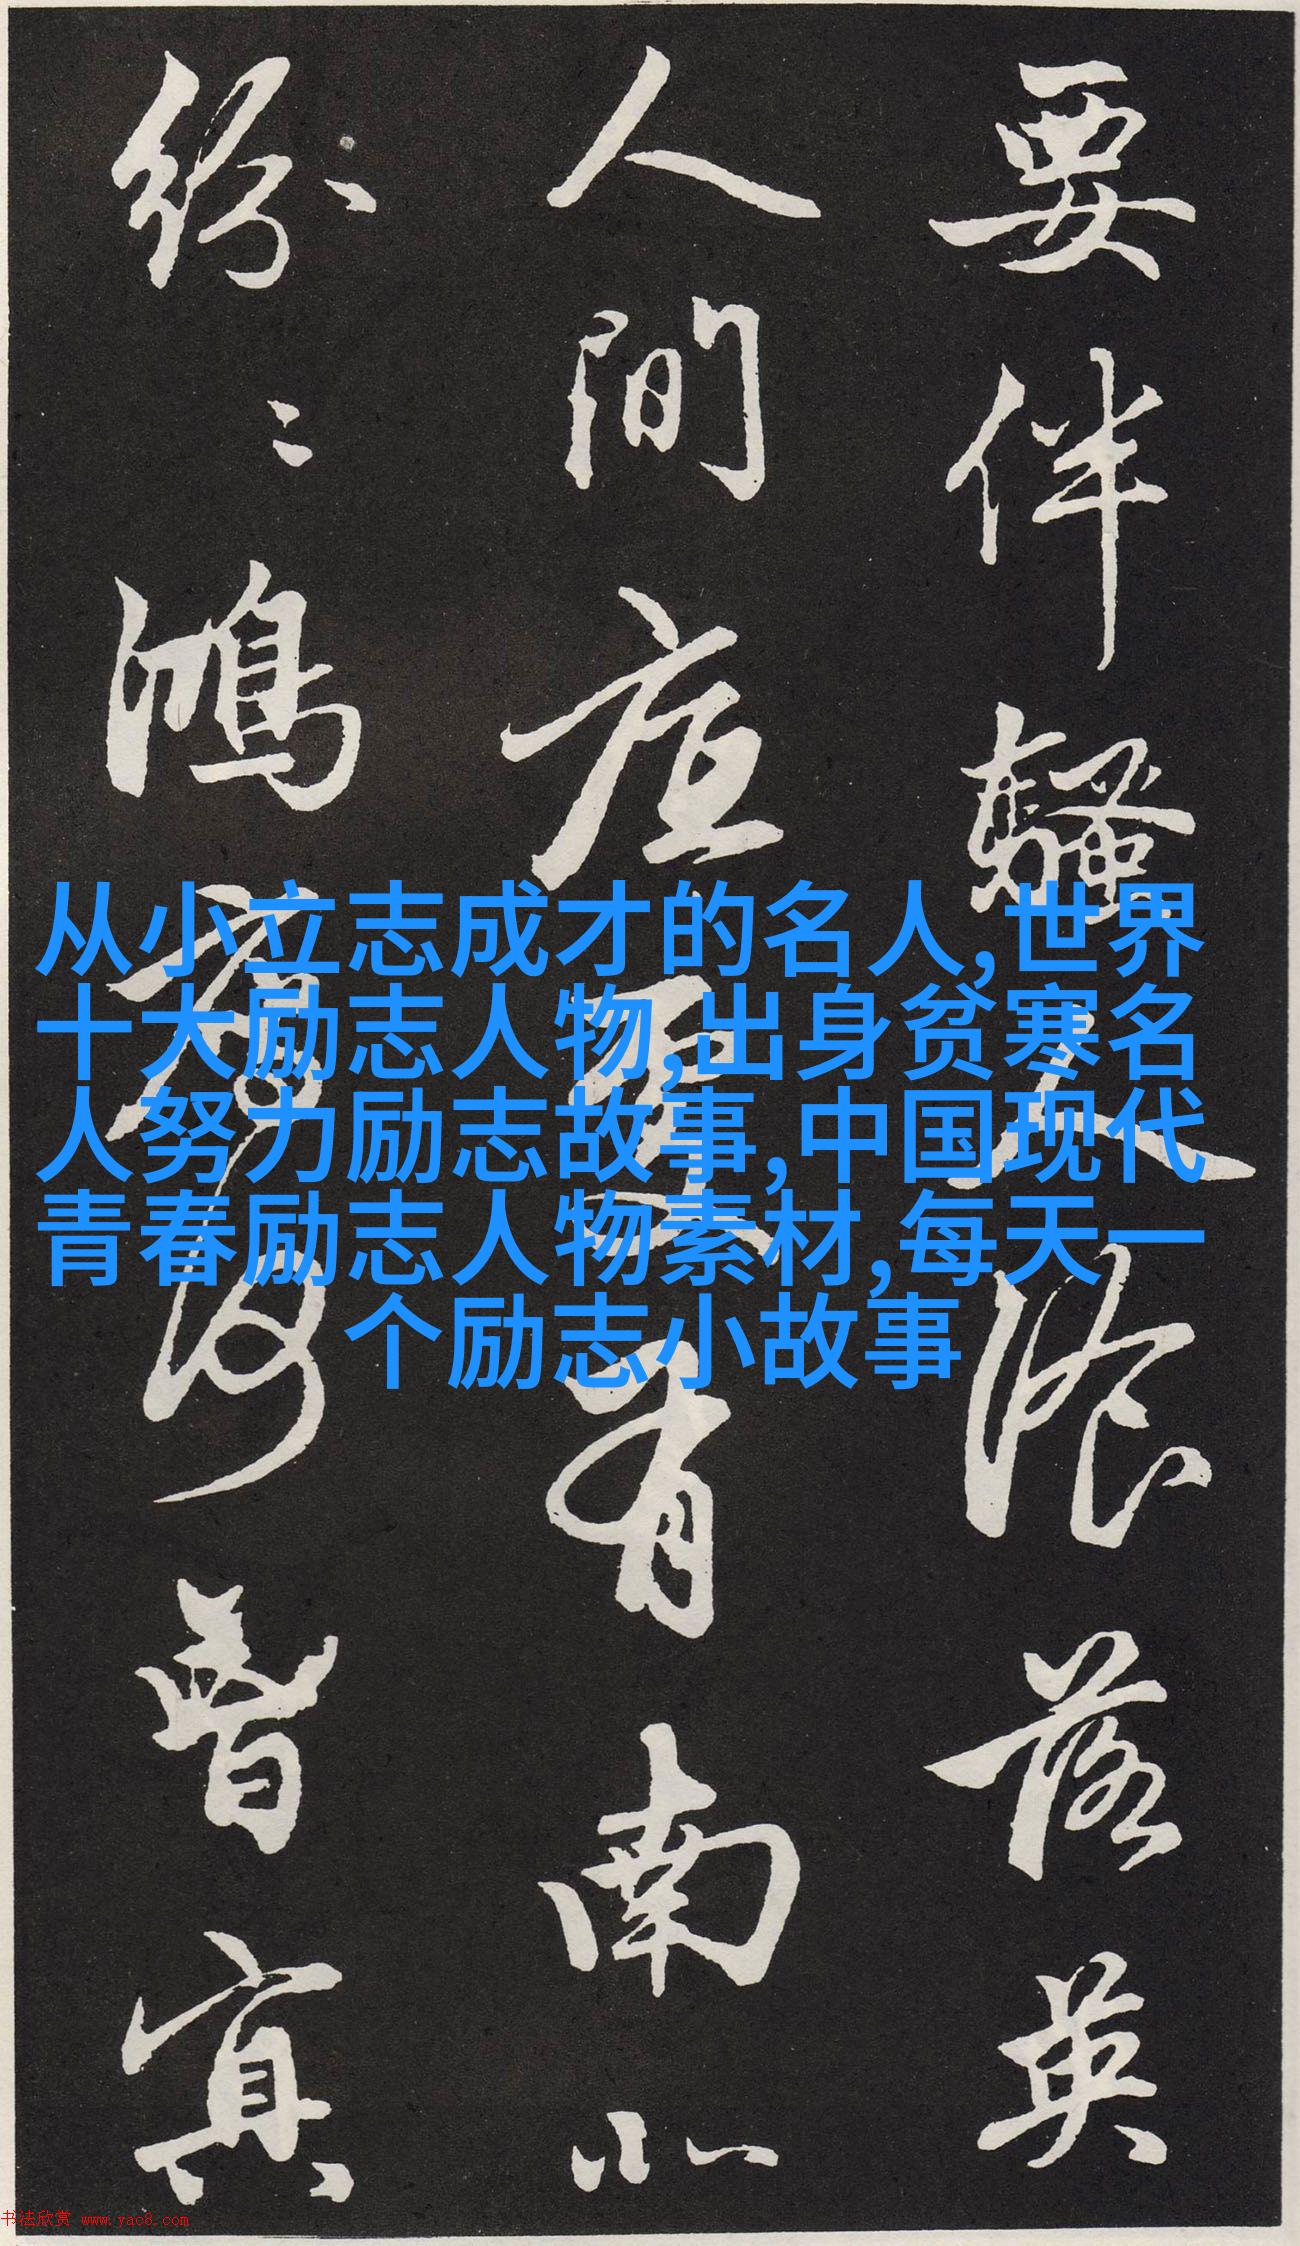 要伴騷人湌落英
人間底處有南北
紛〻鴻鴈何曾冥
从小立志成才的名人,世界
十大励志人物,出身贫寒名
人努力励志故事,中国现代
青春励志人物素材,每天一
个励志小故事
书法欣赏 www.yac8.com